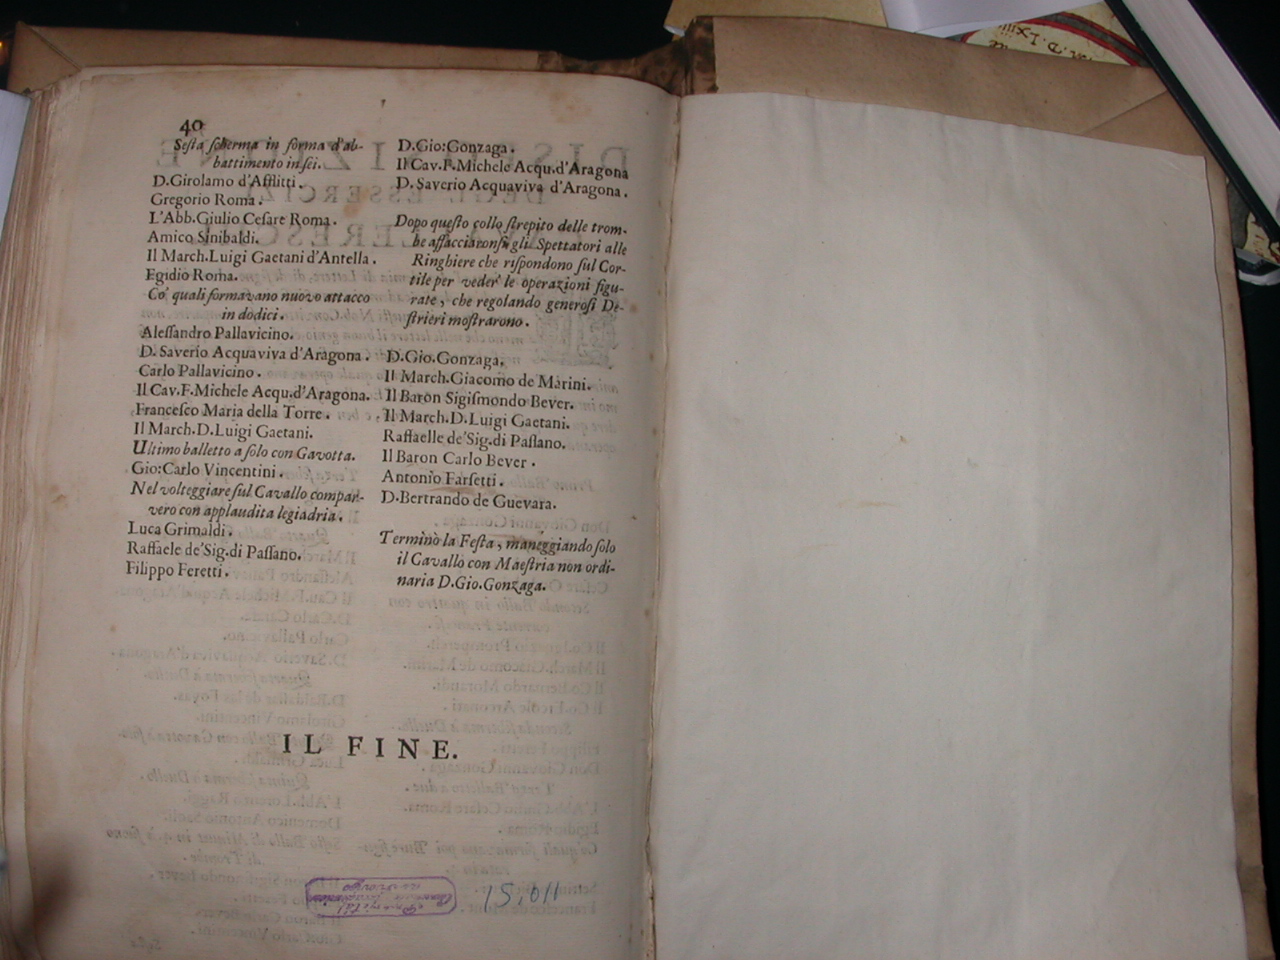 40
Sesta scherma in forma d'ab-
battimento in sei.
D.Girolamo d'Afflitti.
Gregorio Roma.
L'Abb.Giulio Cesare Roma.
Amico Sinibaldi.
Il March.Luigi Gaetani d'Antella.
Egidio Roma.
Co' quali formavano nuovo attacco
in dodici.
Alessandro Pallavicino.
D. Saverio Acquaviva d'Aragona.
Carlo Pallavicino.
Il Cav.F.Michele Acqu.d'Aragona.
Francesco Maria della Torre.
Il March.D.Luigi Gaetani.
Ultimo balletto a solo con Gavotta.
Gio:Carlo Vincentini.
Nel volteggiare sul Cavallo compar-
vero con applaudita legiadria.
Luca Grimaldi.
Raffaele de'Sig.di Passano.
Filippo Feretti.
D.Gio:Gonzaga.
Il Cav.F.Michele Acqu.d'Aragona
D. Saverio Acquaviva d'Aragona.
Dopo questo collo strepito delle trom-
be affacciaronsi gli Spettatori alle
Ringhiere che rispondono sul Cor-
tile per veder' le operazioni figu-
rate, che regolando generosi De-
strieri mostrarono.
D.Gio.Gonzaga.
Il March.Giacomo de Marini.
Il Baron Sigismondo Bever.
Il March.D.Luigi Gaetani.
Raffaelle de'Sig.di Passano.
Il Baron Carlo Bever.
Antonio Farsetti.
D.Bertrando de Guevara.
Terminò la Festa, maneggiando solo
il Cavallo con Maestria non ordi-
naria D.Gio.Gonzaga.
IL FINE.
15,011